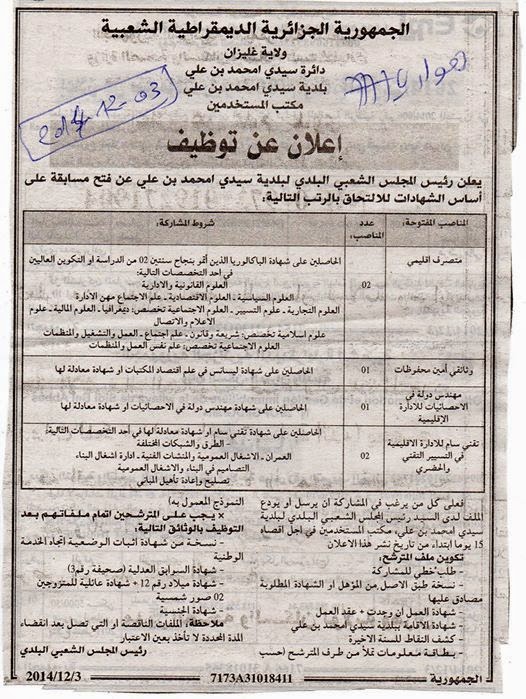 الجمهورية الجزائرية الديمقراطية الشعبية
ولاية غليزان
دائرة سيدي امحمد بن علي
بلدية سيدي امحمد بن علي
مكتب المستخدمين
2014-12-03
إعلان عن توظيف
يعلن رئيس المجلس الشعبي البلدي لبلدية سيدي امحمد بن علي عن فتح مسابقة على
أساس الشهادات للالتحاق بالرتب التالية:
المناصب المفتوحة:
عدد المناصب:
شروط المشاركة:
متصرف اقليمي
02
الحاصلين على شهادة الباكالوريا الذين أتموا بنجاح سنتين 02 من الدراسة او التكوين العاليين
في احد التخصصات التالية:
العلوم القانونية والادارية
العلوم السياسية ـ العلوم الاقتصادية ـ علم الاجتماع مهن الادارة
العلوم التجارية ـ علوم التسيير ـ العلوم الاجتماعية تخصص: ديمغرافيا ـ العلوم المالية ـ علوم
الاعلام والاتصال
علوم اسلامية تخصص: شريعة وقانون ـ علم اجتماع ـ العمل والتشغيل والمنظمات
العلوم الاجتماعية تخصص: علم نفس العمل والمنظمات
وثائقي أمين محفوظات
01
الحاصلين على شهادة ليسانس في علم اقتصاد المكتبات او شهادة معادلة لها
مهندس دولة في
الاحصائيات للادارة
الإقليمية
01
الحاصلين على شهادة مهندس دولة في الاحصائيات او شهادة معادلة لها
تقني سام للادارة الاقليمية
في التسيير التقني
والحضري
02
الحاصلين على شهادة تقني سام او شهادة معادلة لها في أحد التخصصات التالية:
ـ الطرق والشبكات المختلفة
العمران ـ الاشغال العمومية والمنشآت الفنية ـ ادارة اشغال البناء
التصاميم في البناء والاشغال العمومية
تصليح وإعادة تأهيل المباني
فعلى كل من يرغب في المشاركة ان يرسل او يودع
الملف لدى السيد رئيس المجلس الشعبي البلدي لبلدية
سيدي امحمد بن علي، مكتب المستخدمين في اجل اقصاه
15 يوما ابتداء من تاريخ نشر هذا الاعلان
تكوين ملف المترشح:
- طلب خطي للمشاركة
- نسخة طبق الاصل من المؤهل او الشهادة المطلوبة
مصادق عليها
- شهادة العمل ان وجدت + عقد العمل
- شهادة الاقامة ببلدية سيدي امحمد بن علي
- كشف النقاط للسنة الاخيرة
- بطاقة معلومات تملأ من طرف المترشح (حسب
النموذج المعمول به)
× يجب على المترشحين اتمام ملفاتهم بعد
التوظيف بالوثائق التالية:
- نسخة من شهادة اثبات الوضعية اتجاه الخدمة
الوطنية
- شهادة السوابق العدلية (صحيفة رقم 3)
- شهادة ميلاد رقم 12 + شهادة عائلية للمتزوجين
02 صور شمسية
- شهادة الجنسية
ملاحظة: الملفات الناقصة او التي تصل بعد انقضاء
المدة المحددة لا تأخذ بعين الاعتبار
رئيس المجلس الشعبي البلدي
الجمهورية
7173A31018411
2014/12/3